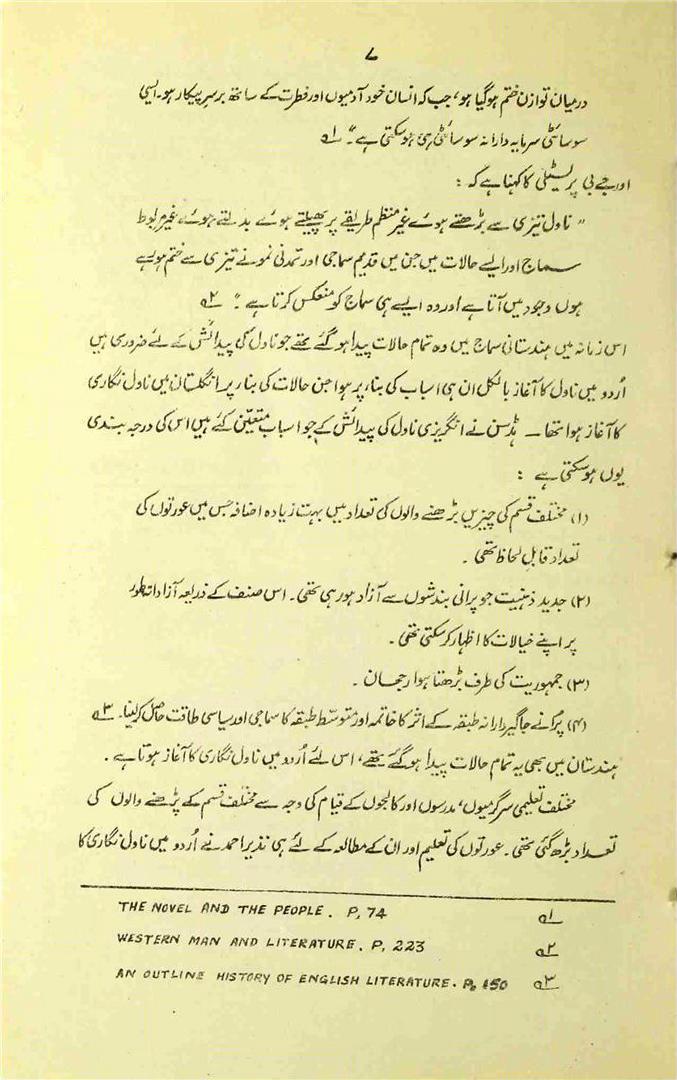 ۷
درمیان توازن ختم ہوگیا ہو، جب کہ انسان خود آدمیوں اور فطرت کے ساتھ برسرِ پیکار ہو۔ ایسی
سوسائٹی سرمایہ دارانہ سوسائٹی ہی ہوسکتی ہے۔" ؎۱
اور جے بی پریسٹلی کا کہنا ہے کہ :
" ناول تیزی سے بڑھتے ہوئے غیر منظم طریقے پر پھیلتے ہوئے بدلتے ہوئے غیر مربوط
سماج اور ایسے حالات میں جن میں قدیم سماجی اور تمدنی نمونے تیزی سے ختم ہو رہے
ہوں وجود میں آتا ہے اور وہ ایسے ہی سماج کو منعکس کرتا ہے۔" ؎۲
اس زمانہ میں ہندستانی سماج میں وہ تمام حالات پیدا ہوگئے تھے جو ناول کی پیدائش کے لئے ضروری ہیں
اُردو میں ناول کا آغاز بالکل ان ہی اسباب کی بناء پر ہوا جن حالات کی بناء پر انگلستان میں ناول نگاری
کا آغاز ہوا تھا ۔ ہڈسن نے انگریزی ناول کی پیدائش کے جو اسباب متعیّن کئے ہیں اس کی درجہ بندی
یوں ہوسکتی ہے :
(۱) مختلف قسم کی چیزیں پڑھنے والوں کی تعداد میں بہت زیادہ اضافہ جس میں عورتوں کی
تعداد قابلِ لحاظ تھی ۔
(۲) جدید ذہنیت جو پرانی بندشوں سے آزاد ہو رہی تھی۔ اس صنف کے ذریعہ آزادانہ طور
پر اپنے خیالات کا اظہار کرسکتی تھی ۔
(۳) جمہوریت کی طرف بڑھتا ہوا رجحان ۔
(۴) پُرانے جاگیردارانہ طبقہ کے اثر کا خاتمہ اور متوسّط طبقہ کا سماجی اور سیاسی طاقت حاصل کرلینا۔ ؎۳
ہندستان میں بھی یہ تمام حالات پیدا ہوگئے تھے، اس لئے اُردو میں ناول نگاری کا آغاز ہوتا ہے ۔
مختلف تعلیمی سرگرمیوں، مدرسوں اور کالجوں کے قیام کی وجہ سے مختلف قسم کے پڑھنے والوں کی
تعداد بڑھ گئی تھی ۔ عورتوں کی تعلیم اور ان کے مطالعہ کے لئے ہی نذیر احمد نے اُردو میں ناول نگاری کا
THE NOVEL AND THE PEOPLE. P, 74 ؎۱
WESTERN MAN AND LITERATURE. P, 223 ؎۲
AN OUTLINE HISTORY OF ENGLISH LITERATURE. P. 150 ؎۳